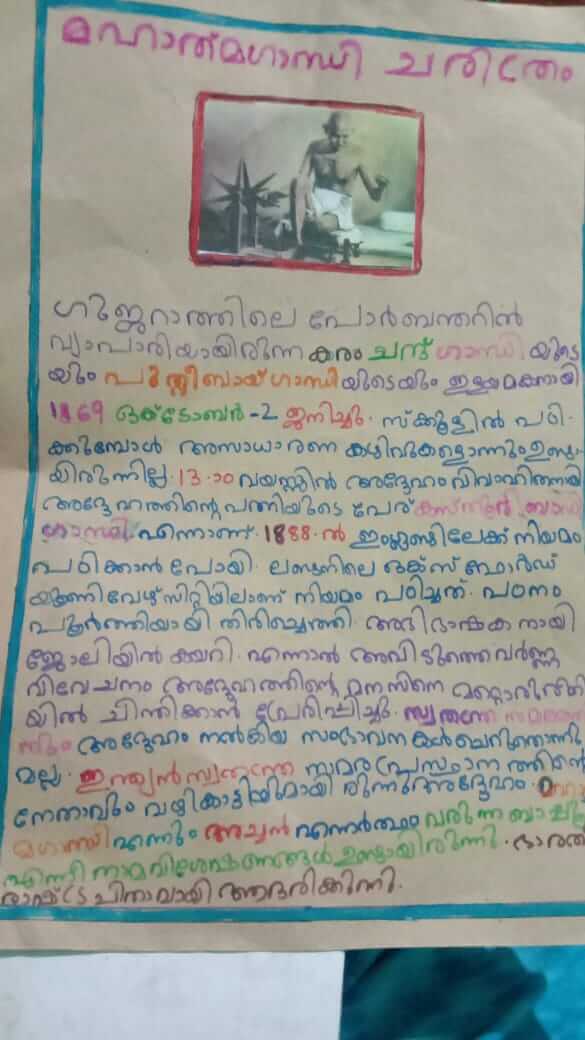 മഹാത്മഗാന്ധി ചരിത്രം
ഗുജ്ജറാത്തിലെ പോർബന്തറിൽ
വ്യാപാരിയായിരുന്ന കരം ചന്ദ് ഗാന്ധി യുടെ
യും പുത്ലീബായ് ഗാന്ധിയുടെയും ഇളയമകനായി
1869 ഒക്ടോബർ -2 ജനിച്ചു. സ്ക്കൂളിൽ പഠി-
ക്കുമ്പോൾ അസാധാരണ കഴിവുകളൊന്നും ഉണ്ടാ
യിരുന്നില്ല. 13-ാo വയസ്സിൽ അദ്ദേഹം വിവാഹിതനായി
അദ്ദേഹത്തിന്റെ പത്നിയുടെ പേര് കസ്തൂർ ബാ
ഗാന്ധി. എന്നാണ്. 1888-ൽ ഇംഗ്ലണ്ടിലേക്ക് നിയമം
പഠിക്കാൻ പോയി. ലണ്ടനിലെ ഒക്സ് ഫോർഡ്
യൂണിവേഴ്സിറ്റിയിലാണ് നിയമം പഠിച്ചത്. പഠനം
പൂർത്തിയായി തിരിച്ചെത്തി. അഭിഭാഷക നായി
ജോലിയിൽ കയറി. എന്നാൽ അവിടുത്തെ വർണ്ണ
വിവേചനം അദ്ദേഹത്തിന്റെ മനസിനെ മറ്റൊരുരീതി
യിൽ ചിന്തിക്കാൻ പ്രേരിപ്പിച്ചു. സ്വതന്ത്ര
അദ്ദേഹം നൽകിയ സംഭാവനകൾ ചെറുതൊന്നു
മല്ല. ഇന്ത്യൻ സ്വതന്ത്ര സമര പ്രസ്ഥാനത്തിന്റെ
നേതാവും വഴികാട്ടിയുമായി രുന്നു അദ്ദേഹം. മഹാ
മഗാന്ധി എന്നും അച്ഛൻ എന്നർത്ഥം വരുന്ന ബാപ്പു
എന്നീ നാമവിശേഷണങ്ങൾ ഉണ്ടായിരുന്നു. ഭാരത
രാഷ്ട്ര പിതാവായി ആദരിക്കുന്നു.